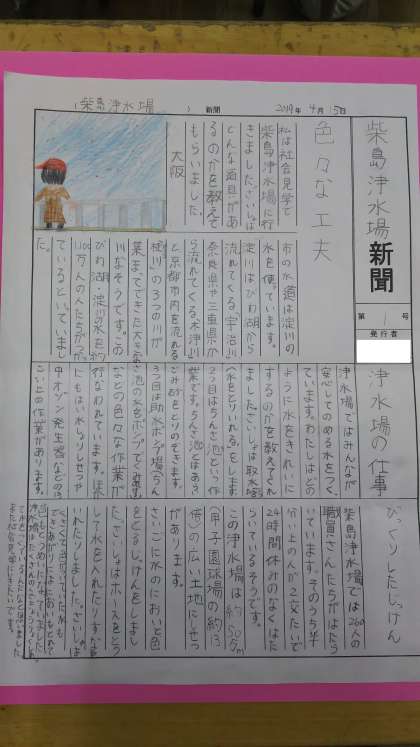 （柴島浄水場　）新聞　2019年 4月 15日
柴島浄水場新聞
第　号
発行者
色々な工夫
私は社会見学で
柴島浄水場に行
きました。さいしょは
どんな道具があ
るのかを教えて
もらいました。
大阪
市の水道は淀川の
水を使っています。
淀川はびわ湖から
流れてくる、宇治川
奈良県や三重県か
ら流れてくる、木津川
と京都市内を流れる
桂川の3つの川が
集まってできた大きな
川なそうです。この
びわ湖、淀川の水を約
万人の人たちがつか
ているといていまし
た。
浄水場の仕事
浄水場ではみんなが
安心してのめる水をつく
ています。わたしはどの
ように水をきれいに
するのかを教えてくれ
ました。さいしょは取水場
へ水をとりいれる。をします
2つ目はちんさ池という作
業です。ちんさ池とはあら
ごみ砂をとりのぞきます。
3つ目は取水ポンプ場
池の水をポンプで
などの色々な作業が
行なわれています。ほ
にもはいすいしょりしせつや
中オゾン発生器などの
こい上の作業があります。
びっくりしたじっけん
柴島浄水場では260人の
職員さんたちがはたら
いています。そのうち半
分い上の人が2交たいで
24時間休みのなくはた
らいているそうです。
この浄水場は約50万㎡
（甲子園球場の約13
倍）の広い土地にたっせつ
があります。
さいごに水のにおいと色
をとるじっけんをしまし
た。さいしょはホースをとう
して水を入れたりすな
いれたりしました。さいしょは